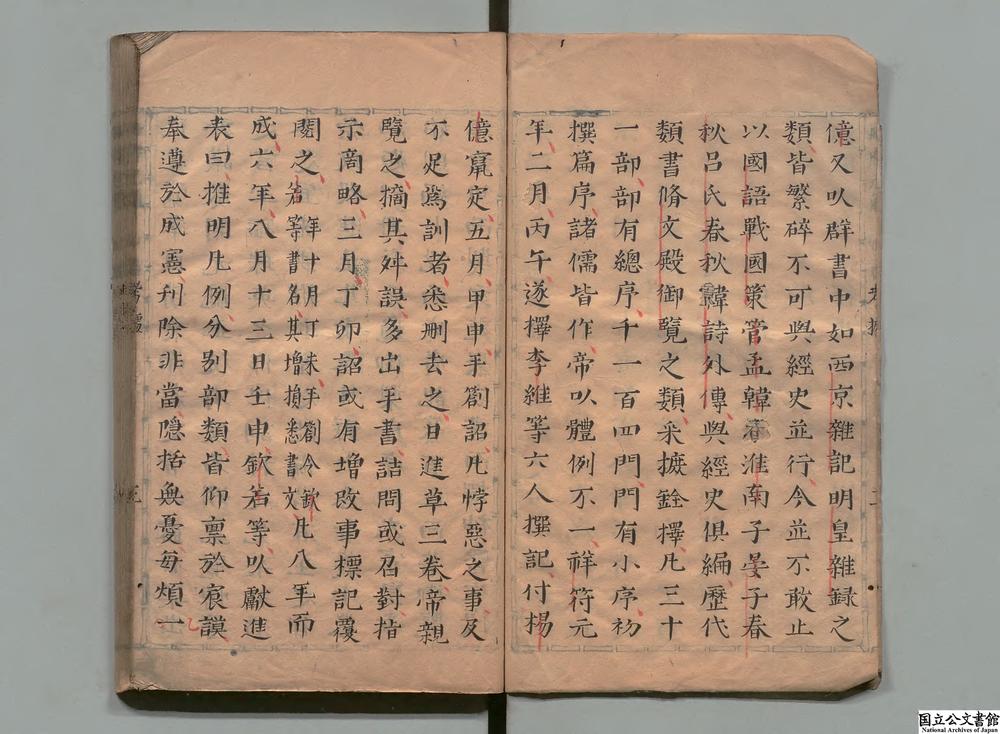 億又以群書中如西京雜記明皇雜録之
類皆繁碎不可與經史並行今並不敢止
以國語戰國策管孟韓子淮南子晏子春
秋吕氏春秋韓詩外傳與經史俱編歷代
類書脩文殿御覽之類采摭銓擇凡三十
一部部有總序千一百四門門有小序初
撰篇序諸儒皆作帝以體例不一祥符元
年二月丙午遂擇李維等六人撰記付楊
億竄定五月甲申手劄詔凡悖惡之事及
不足為訓者悉刪去之日進草三卷帝親
覽之摘其舛誤多出手書詰問或召對指
示商略三月丁卯詔或有增改事標記覆
閱之
年十月丁未手劄今欽
若等書名其增損悉書
文凡八年而
成六年八月十三日壬申欽若等以獻進
表曰推明凡例分別部類皆仰禀於宸謨
奉遵於成憲刊除非當隐括無憂每煩一
乙
考據
二
五
国立公文書館
National Archives of Japan